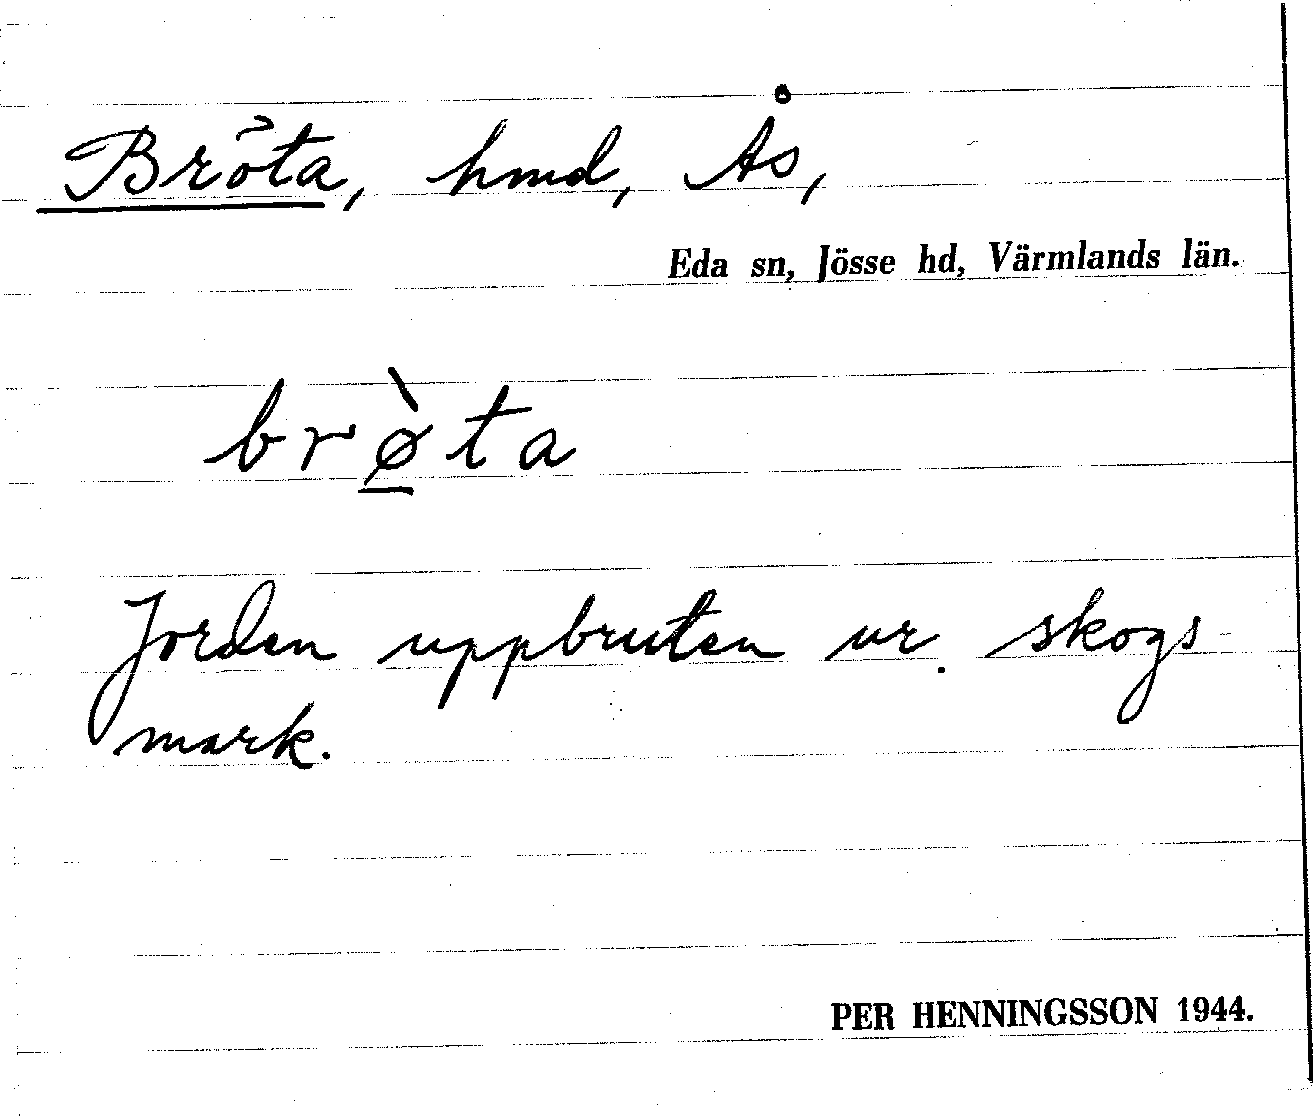 Bröta, hmd, Ås,
Eda sn, Jösse hd, Värmlands län.
brø̲̀ta
Jorden uppbruten ur skogs-
mark.
PER HENNINGSSON 1944.